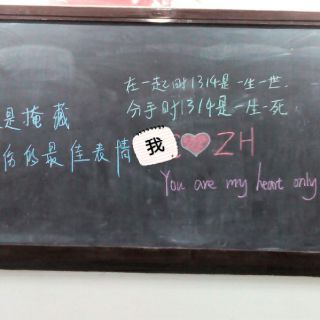 在一起时1314是一生一世.
分手时1314是一生一死.
是掩藏
的最佳表情
我 ZH
You are my heart only